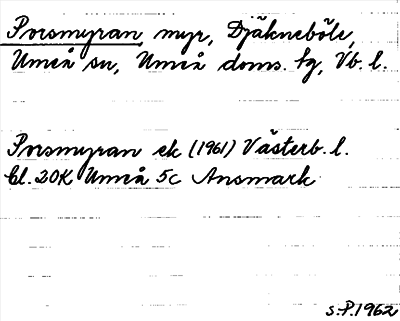 Porsmyran myr, Djäkneböle,
Umeå sn, Umeå doms. tg, Vb. l.
Porsmyran ek (1961) Västerb. l.
bl. 20K Umeå 5c Ansmark
S.P. 1962